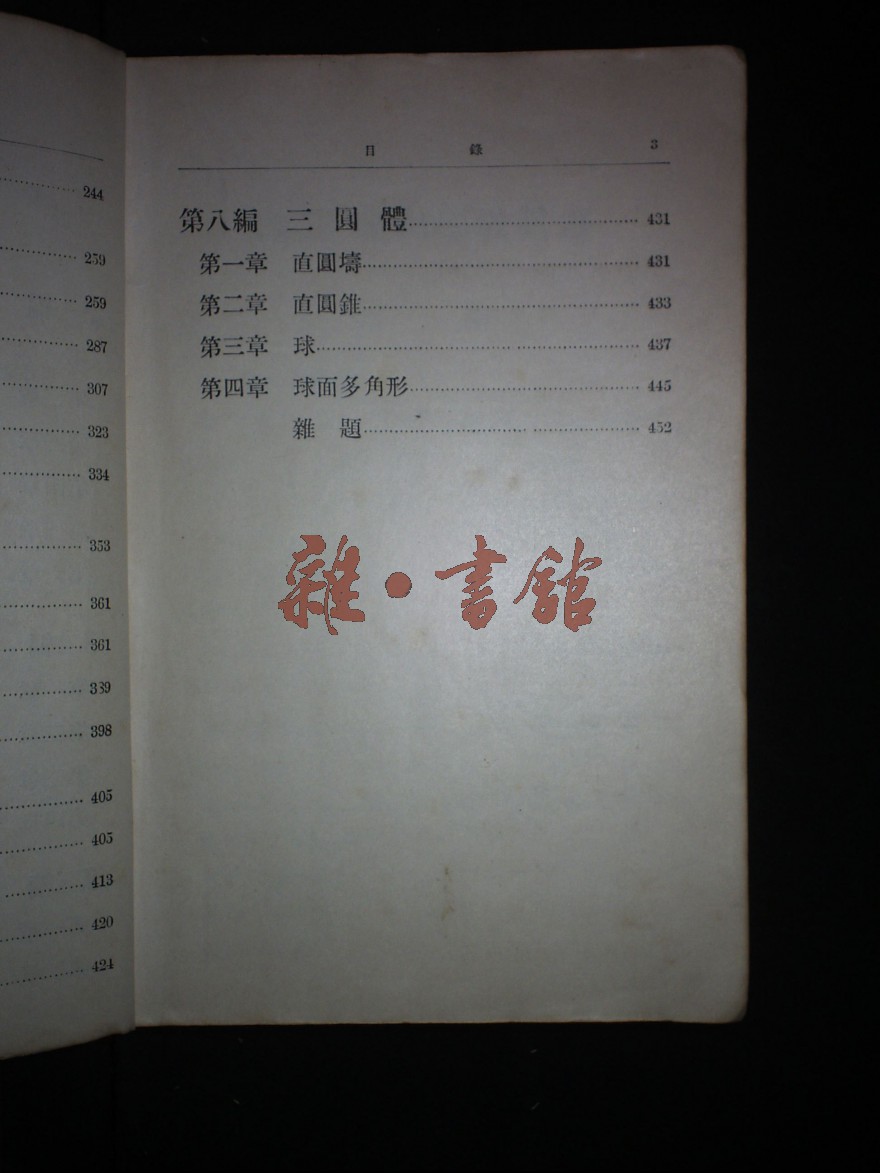 244
259
259
287
307
323
334
353
361
361
389
398
405
405
413
420
424
目錄 3
第八編 三圓體 431
第一章 直圓壔 431
第二章 直圓錐 433
第三章 球 437
第四章 球面多角形 445
雜題 452
雜·書館